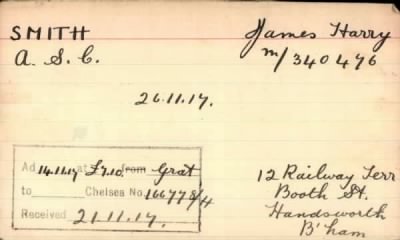 SMITH James Harry
A. S. C. M/340476
26.11.17.
Ad 14.11.17 at £7.10. from Grat
to Chelsea No. 166778/H
Received 21.11.17.
12 Railway Terr
Booth St.
Handsworth
B'ham